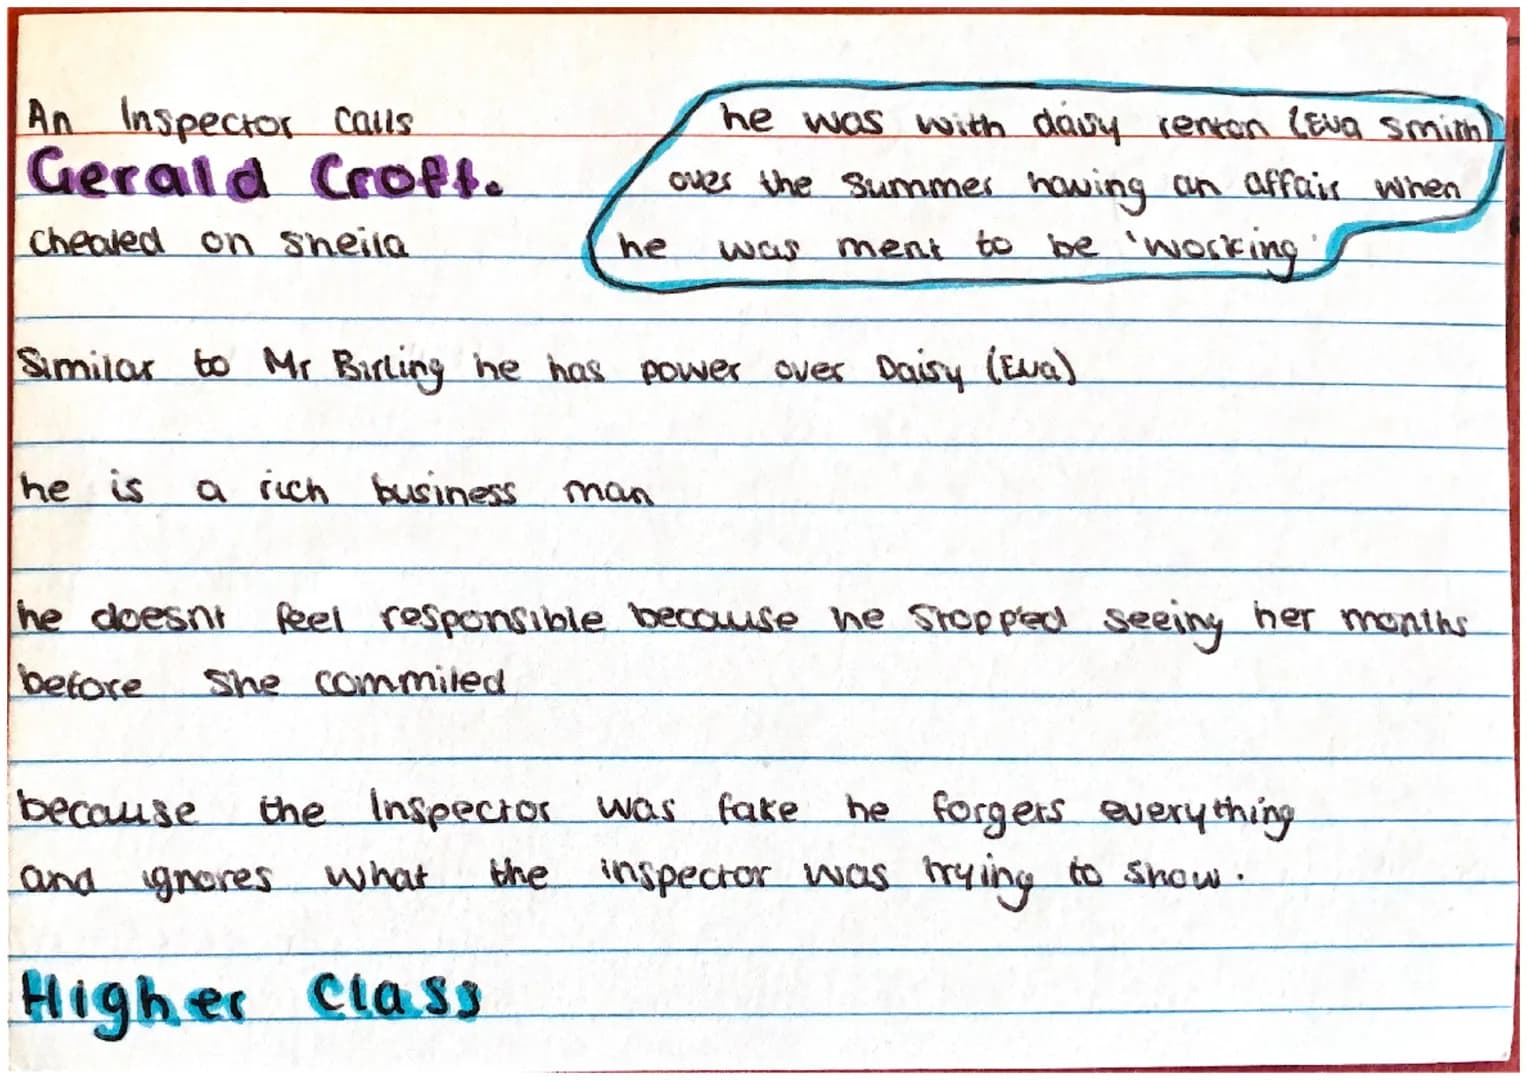 An Inspector calls
Gerald Croft.
cheated on sheila
he was with daisy renton (Eva smith)
over the summer having an affair when
he was ment to be 'working'
Similar to Mr Birling he has power over Daisy (Eva)
he is a rich business man
he doesnt feel responsible because he stopped seeing her months
before she commited
because the Inspector was fake he forgets everything
and ignores what the inspector was trying to show.
Higher Class